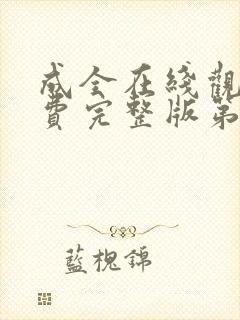 成全在綫觀
費完整版第
藍槐錦